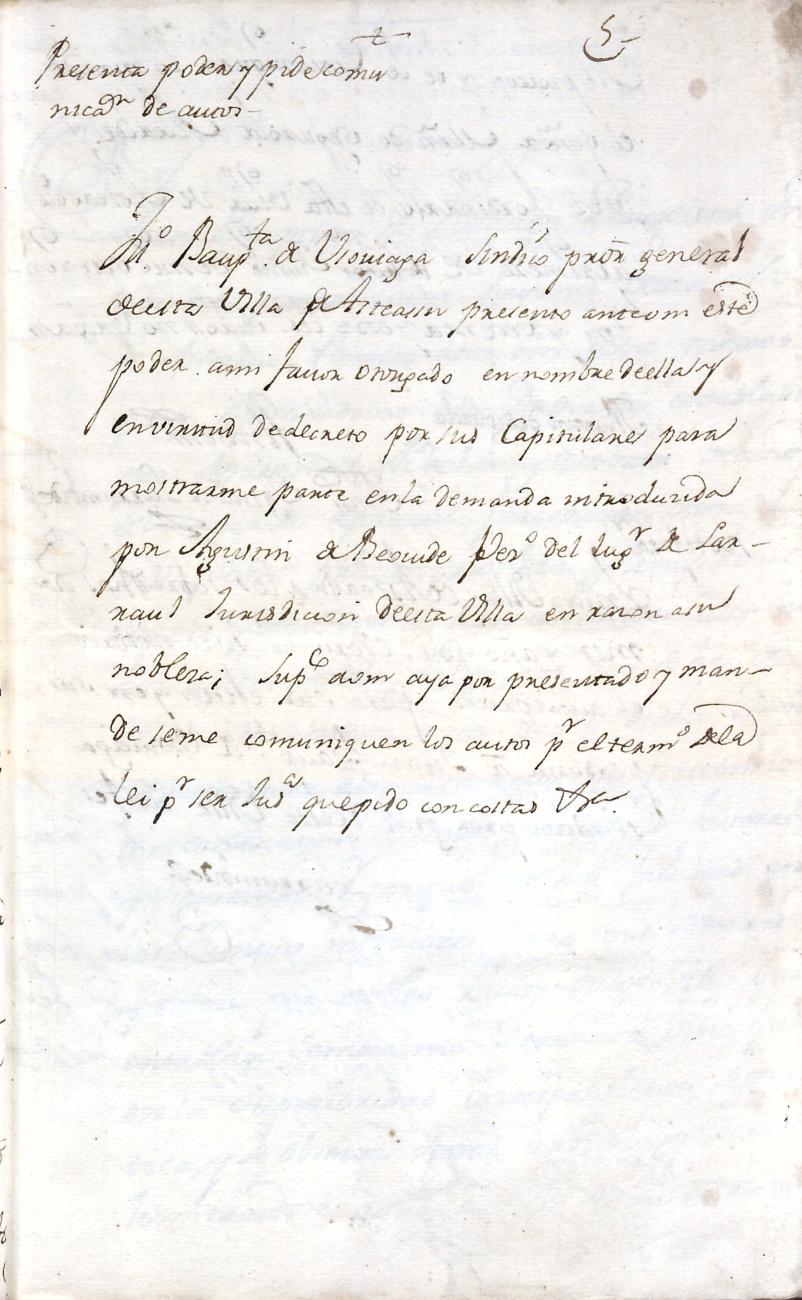 5
Presenta poder y pide comu
nicaon de autos
Juo Baupta de Usoviaga Sindico pror general
de esta Villa de Arteassu presento ante vm este
poder a mi favor otorgado en nombre de ella y
en virtud de decreto por sus Capitulares para
mostrarme parte en la demanda introducida
por Agustin de Beovide vezo del lugr de Lar-
raul Jurisdicion de esta Villa en razon a su
nobleza; Supco a vm aya por presentado y man-
de se me comuniquen los autos pr el termo de la
lei pr ser Justa que pido con costas &a